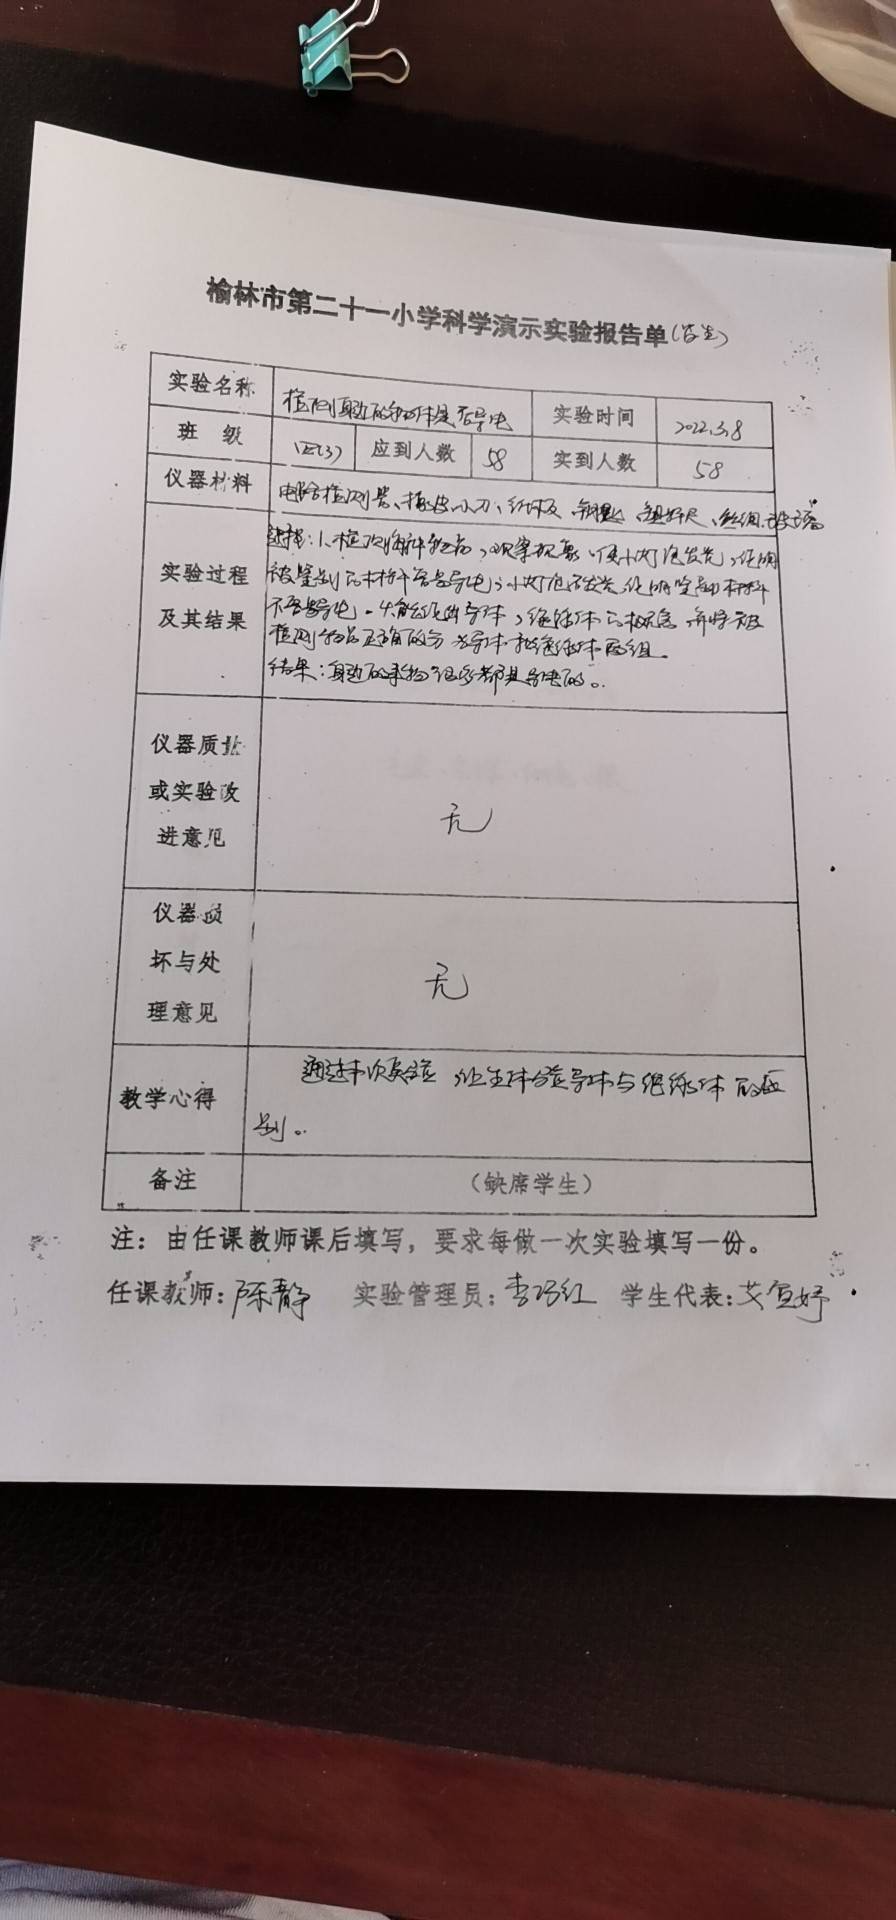 榆林市第二十一小学科学演示实验报告单(学生)
实验名称 检测身边的物体是否导电 实验时间 2022.3.8
班 级 四(3) 应到人数 58 实到人数 58
仪器材料 电路检测器、橡皮、小刀、纸板、钥匙、塑料尺、丝绸、玻璃
实验过程
及其结果
被鉴别的材料
不容易导电。 导体、绝缘体的概念,并将被
检测物品正确的分为导体和绝缘体两组。
结果:身边的 都是导电的。
仪器质量
或实验改
进意见
无
仪器破
坏与处
理意见
无
教学心得
通过本次实验 让学生体会导体与绝缘体的区
别。
备注 (缺席学生)
注:由任课教师课后填写,要求每做一次实验填写一份。
任课教师:陈静 实验管理员:李巧红 学生代表:艾宜妤